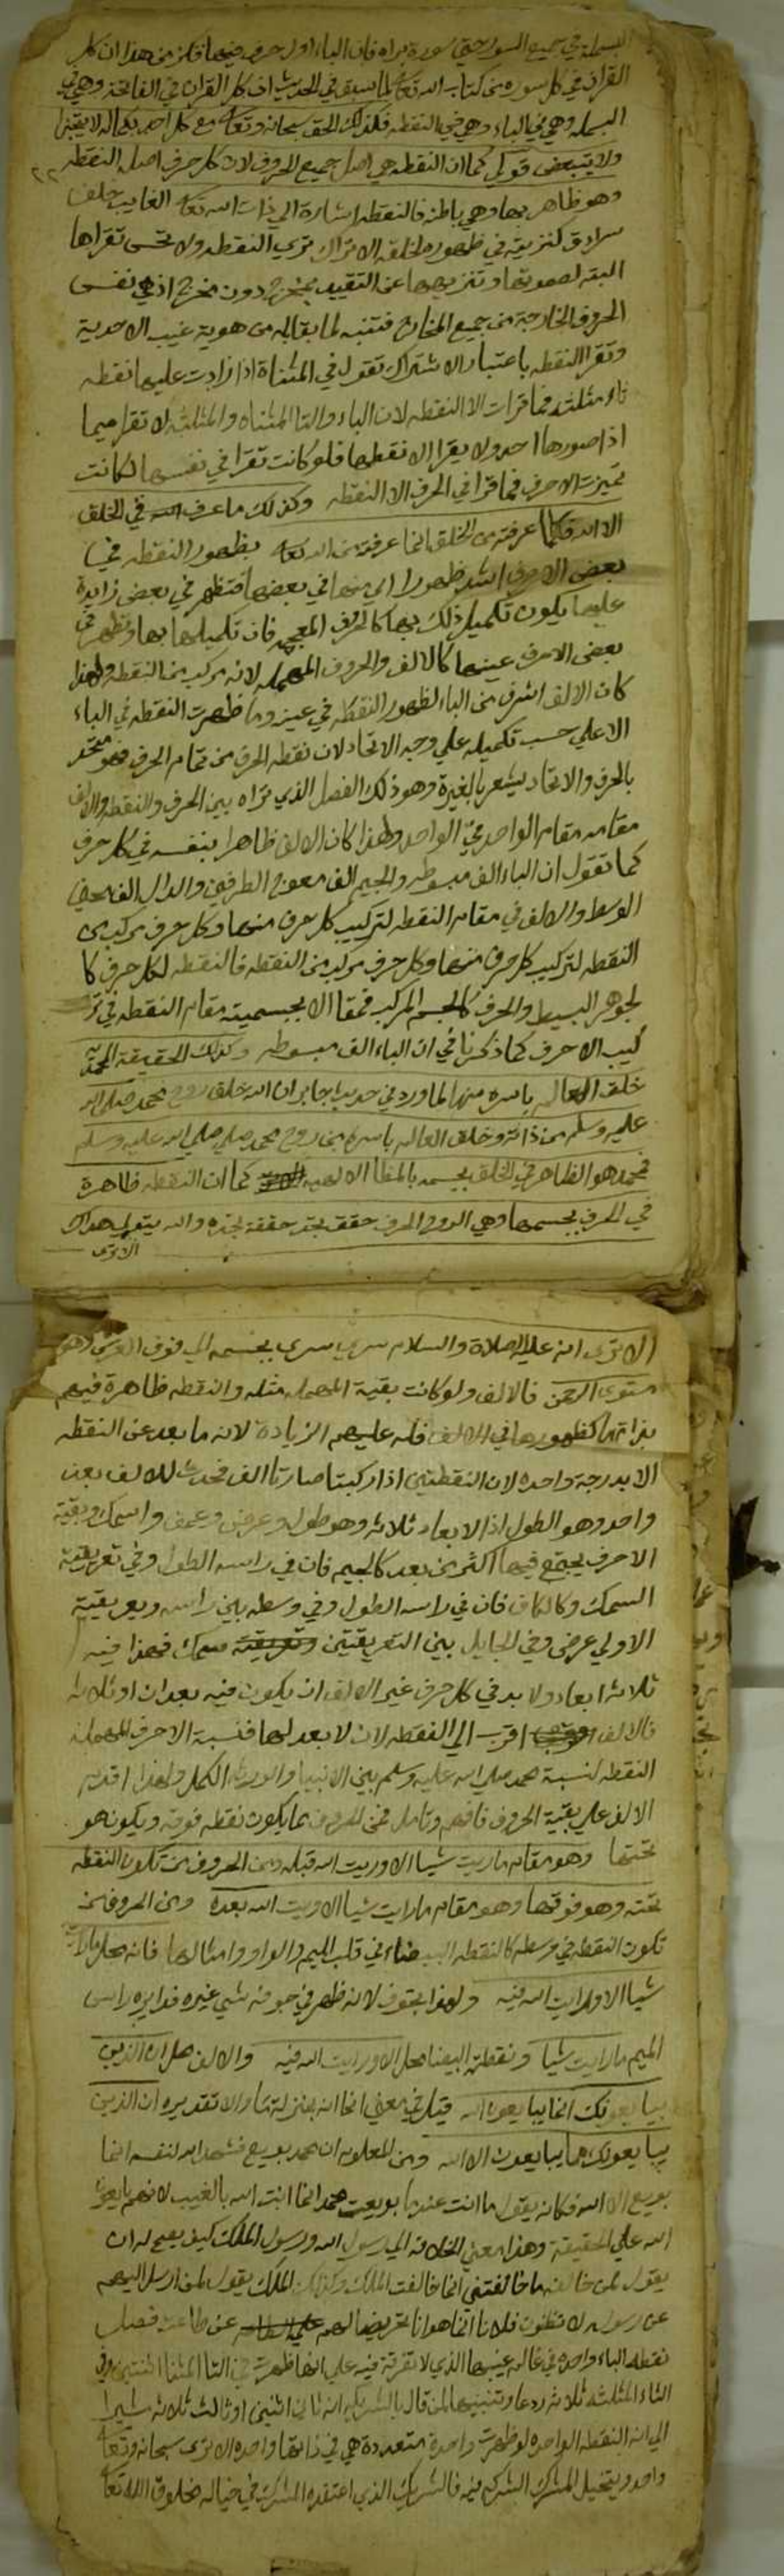 البسملة في جميع السور حتي سورة براه فان الباء اول حرف فيها فلزم من هذا ان كل
القران في كل سورة من كتاب الله تعالى لما سبق في الحديث ان كل القران في الفاتحة وهي في
البسملة وهي في الباء وهي في النقطه فكذلك الحق سبحانه وتعالى مع كل احد بكماله لا يتجزا
ولا يتبعض فقولي كما ان النقطه هي اصل جميع الحروف لان كل حرف اصله النقطه
وهو ظاهر بها وهي باطنه فالنقطه اشارة الي ذات الله تعالى الغايب خلف
سرادق كنزيته في ظهوره لخلقه الا تراك تري النقطه ولا تحسن تقراها
البته لصموتها وتنزيهها عن التقييد بمخرج دون مخرج اذ هي نفس
الحروف الخارجة من جميع المخارج فتنبه لما يقابله من هوية غيب الاحدية
وتقرا النقطه باعتبار الاشتراك تقول في المثناة اذا زادت عليها نقطه
ثاء مثلثه فما قرات الا النقطه لان الباء والتا المثناه والمثلثه لا تقرا
اذا صورها احد ولا يقرا الا نقطها فلو كانت تقرا في نفسها لكانت
تميزت الاحرف فما قرا في الحرف الا النقطه وكذلك ما عرف في الخلق
الا الله فكلما عرفته من الخلق انما عرفته من الله تعالى بظهور النقطه في
بعض الاحرف اشد ظهورا من في بعضها فتظهر في بعض زايدة
عليها يكون تكميل ذلك بها كالحرف المعجم فان تكميلها بها وتظهر في
بعض الاحرف عينها كالالف والحروف المهمله لانه مركب من النقطه ولهذا
كان الالف اشرف من الباء لظهور النقطه في عينه وما ظهرت النقطه في الباء
الا علي حسب تكميله علي وجه الاتحاد لان نقطه الحرف من تمام الحرف فهو متحد
بالحرف والاتحاد يشعر بالغيرة وهو ذلك الفصل الذي تراه بين الحرف والنقطه والالف
مقامه مقام الواحد في الواحد ولهذا كان الالف ظاهرا بنفسه في كل حرف
كما تقول ان الباء الف مبسوطه والجيم الف معوج الطرفين والدال الف منحني
الوسط والالف في مقام النقطه لتركيب كل حرف منها وكل حرف مركب من
النقطه لتركيب كل حرف منها وكل حرف مركب من النقطه فالنقطه لكل حرف كا
لجوهر البسيط والحرف كالجسم المركب فمقام الالف بجسميته مقام النقطه في تر
كيب الاحرف كما ذكرنا في ان الباء الف مبسوطه وكذلك الحقيقة المحمديه
خلق العالم باسره منها لما ورد في حديث جابر ان الله خلق روح محمد صلي الله
عليه وسلم من ذاته وخلق العالم باسره من روح محمد صلي الله عليه وسلم
فمحمد هو الظاهر في الخلق بجسمه بالمظاهر الالهيه كما ان النقطه ظاهرة
في الحرف بجسمها وهي الروح الحرف حقق تجد حققة تجده والله يتولي هداك
الا تري
الا تري انه عليه الصلاة والسلام سري بجسمه الي فوق العرش وهو
مستوي الرحمن فالالف ولو كانت بقية المهمل مثله والنقطه ظاهرة فيهم
بذاتها كظهورها في الالف فله عليهم الزيادة لانه ما بعد عن النقطه
الا بدرجة واحدة لان النقطتين اذا ركبتا صارتا الف فحدث للالف بعد
واحد وهو الطول اذ الابعاد ثلاثه وهو طول وعرض وعمق واسمك وبقية
الاحرف يجتمع فيها اكثر من بعد كالجيم فان في راسه الطول وفي تعريقته
السمك وكالكاف فان في راسه الطول وفي وسطه بين راسه وتعريقته
الاولي عرض وفي الحايل بين التعريقتين سمك فهذا فيه
ثلاثة ابعاد ولا بد في كل حرف غير الالف ان يكون فيه بعدان او ثلاثه
فالالف اقرب الي النقطه لان لا بعد لها فنسبة الاحرف المهمله
النقطه كنسبة محمد صلي الله عليه وسلم بين الانبيا والورثه الكمل ولهذا قدم
الالف علي بقية الحروف فافهم وتامل فمن الحروف ما يكون نقطه فوقه ويكون هو
تحتها وهو مقام ما رايت شيا الا ورايت الله قبله ومن الحروف من تكون النقطه
تحته وهو فوقها وهو مقام ما رايت شيا الا ورايت الله بعده ومن الحروف من
تكون النقطه في وسطه كالنقطه البيضاء في قلب الميم والواو وامثالها فانه محل ما رايت
شيا الا ورايت الله فيه ولهذا تجوف لانه ظهر في جوفه شي غيره فدايره راس
الميم ما رايت شيا ونقطته البيضا محل الا ورايت الله فيه والالف محل ان الذين
يبايعونك انما يبايعون الله قيل في معني انما انه بمنزلة ما والا تقديره ان الذين
يبايعونك ما يبايعون الا الله ومن المعلوم ان محمد بويع فشهد الله لنفسه انما
بويع الا الله فكانه يقول ما انت عندما بويعت محمد انما انت الله بالغيب لانهم بايعوا
الله علي الحقيقة وهذا معني الخلافه الي رسول الله ورسول الملك كيف يصح له ان
يقول لمن خالفه ما خالفتني انما خالفت الملك وكذلك الملك يقول لمن ارسل اليهم
عن رسوله لا تظنون فلانا انما هو انا تحريضا لهم عن طاعته فصل
نقطه الباء واحده في عالم غيبها الذي لا تفرقة فيه علي انها ظهرت في التا المثناة اثنتين وفي
الثاء المثلثه ثلاثه ردعا وتنبيها لمن قال بالشريك انه ثاني اثنين او ثالث ثلاثه مشيرا
الي ان النقطه الواحده لو ظهرت واحدة متعددة هي في ذاتها واحده الا تري سبحانه وتعالى
واحد ويتخيل المشرك الشرك فيه فالشريك الذي اعتقده المشرك في خياله مخلوق الله تعالى